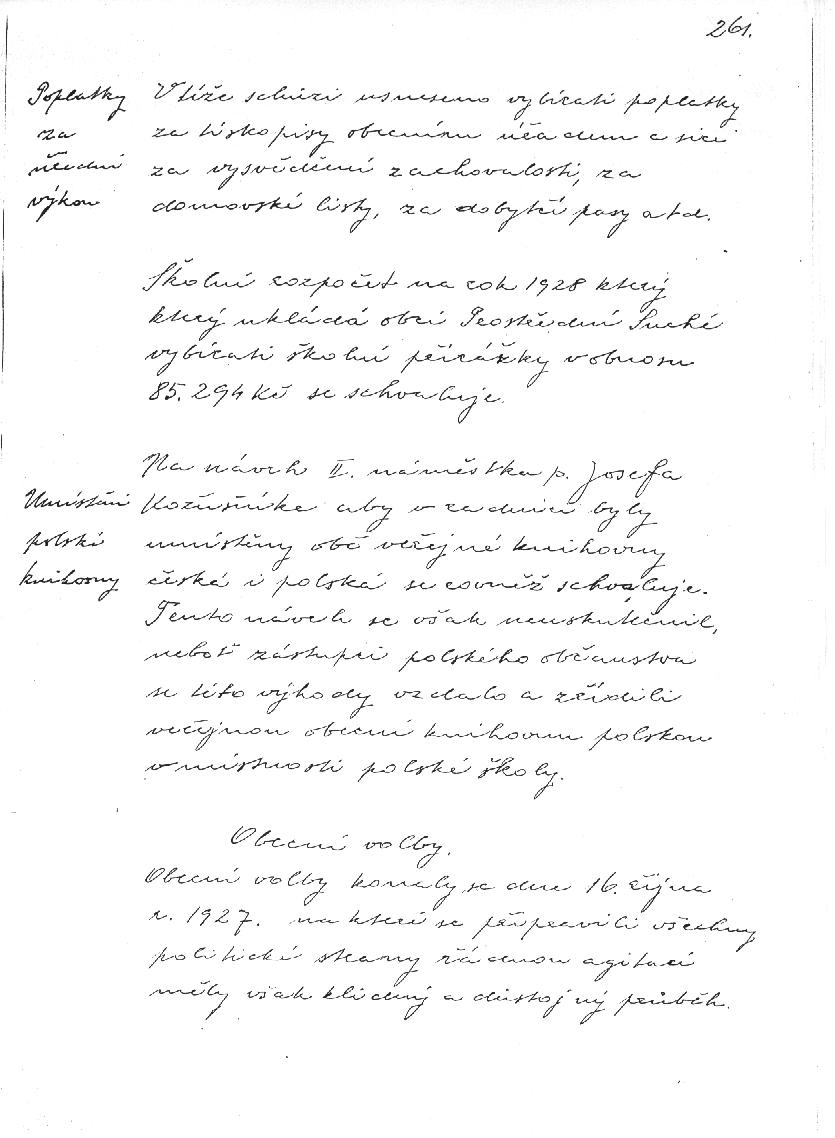 261.
Poplatky
za
úřední
výkon
V téže schůzi usneseno vybírati poplatky
za tiskopisy obecnímu úřadem a sice
za vysvědčení zachovalosti, za
domovské listy, za dobytčí pasy atd.
Školní rozpočet na rok 1928 který
který ukládá obci Prostřední Suché
vybírati školní přirážky v obnosu
85.294 Kč se schvaluje.
Na návrh II. náměstka p. Josefa
Kožusníka aby v radnici byly
umístěny obě veřejné knihovny
česká i polská se rovněž schvaluje.
Tento návrh se však neuskutečnil,
neboť zástupci polského občanstva
se této výhody vzdalo a zřídili
veřejnou obecní knihovnu polskou
v místnosti polské školy.
Umístění
polské
knihovny
Obecní volby.
Obecní volby konaly se dne 16. října
r. 1927. na které se připravili všechny
politické strany řádnou agitací
měly však klidný a důstojný průběh.